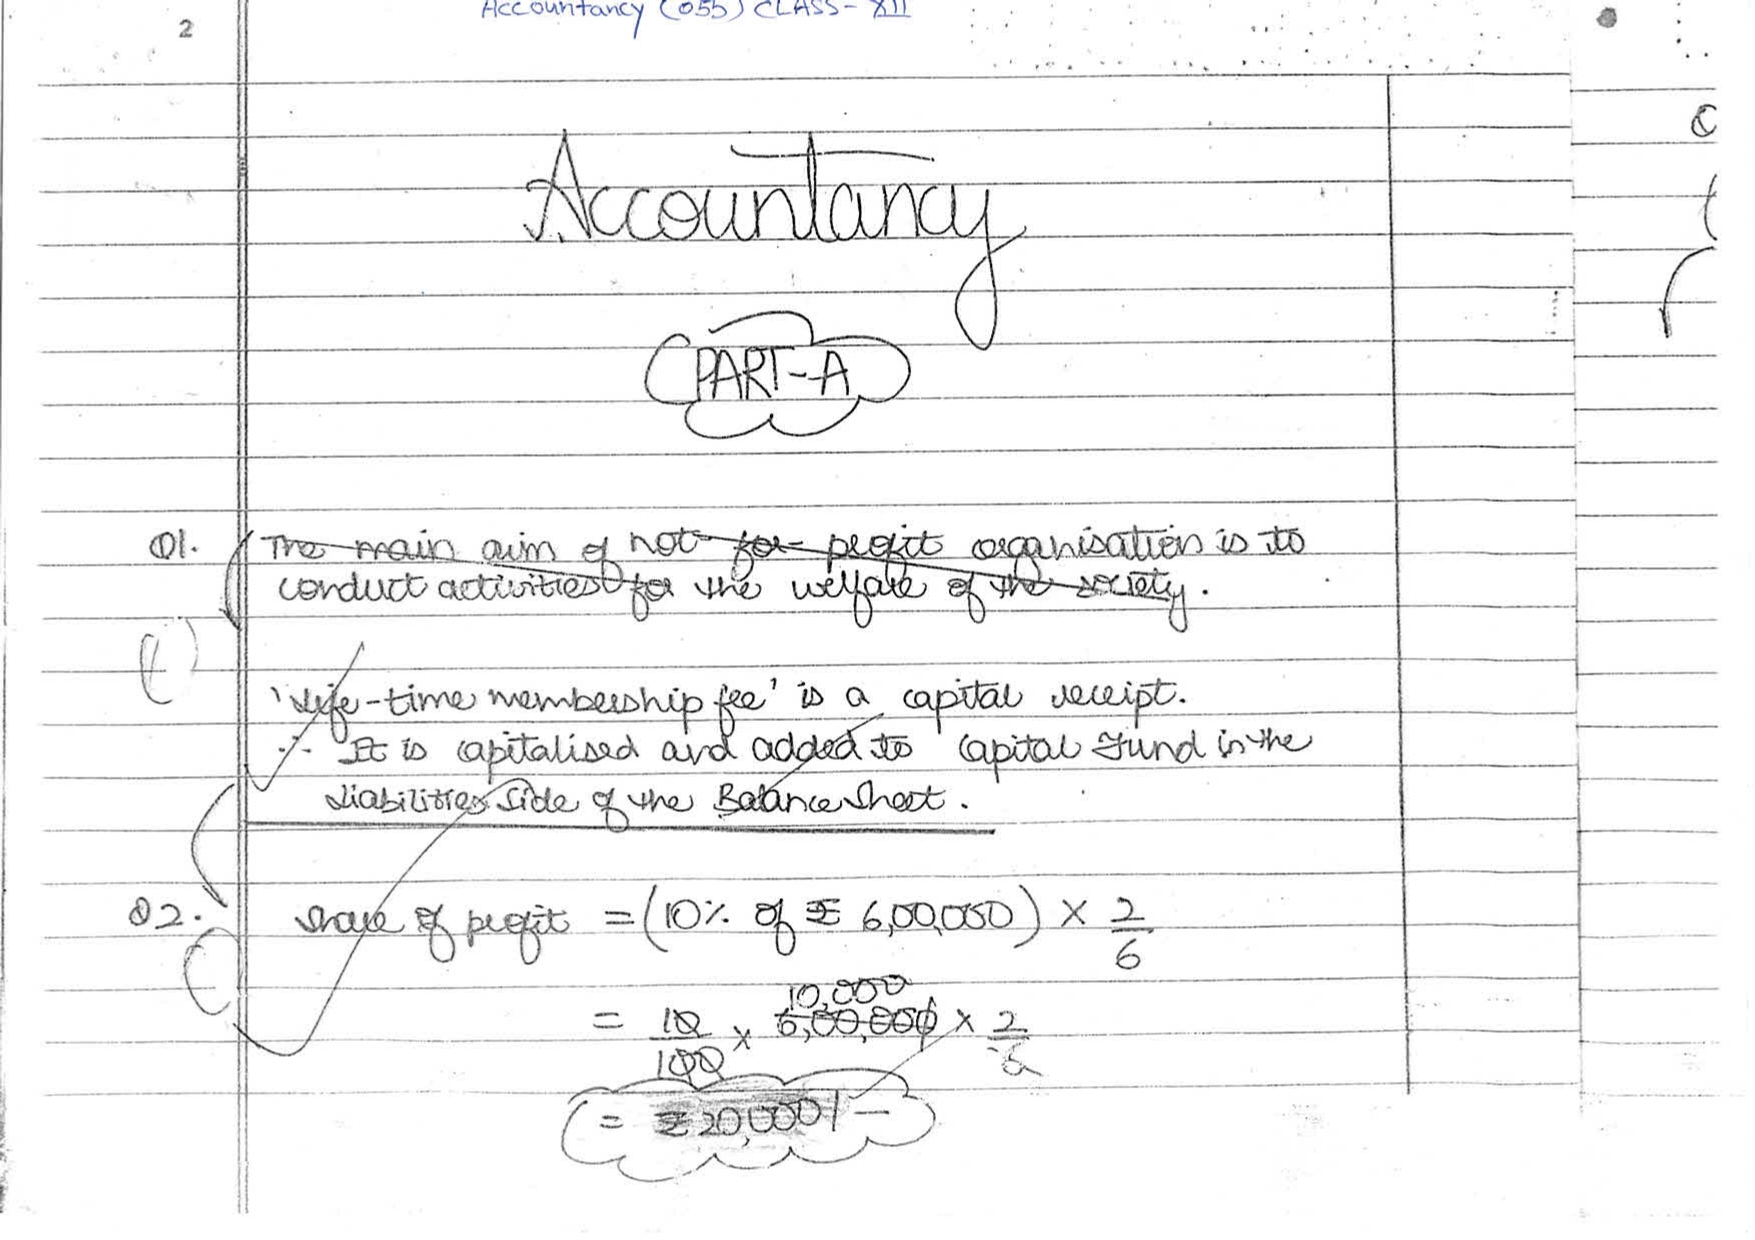 Accountancy (055) CLASS-XII
2
Accountancy
PART-A
Q1. The main aim of not-for-profit organisation is to
conduct activities for the welfare of the society.
'Life-time membership fee' is a capital receipt.
∴ It is capitalised and added to Capital Fund in the
Liabilities Side of the Balance Sheet.
Q2. Share of profit = (10% of ₹ 6,00,000) × 2/6
10,000
= 10/100 × 6,00,000 × 2/6
= ₹ 20,000/-